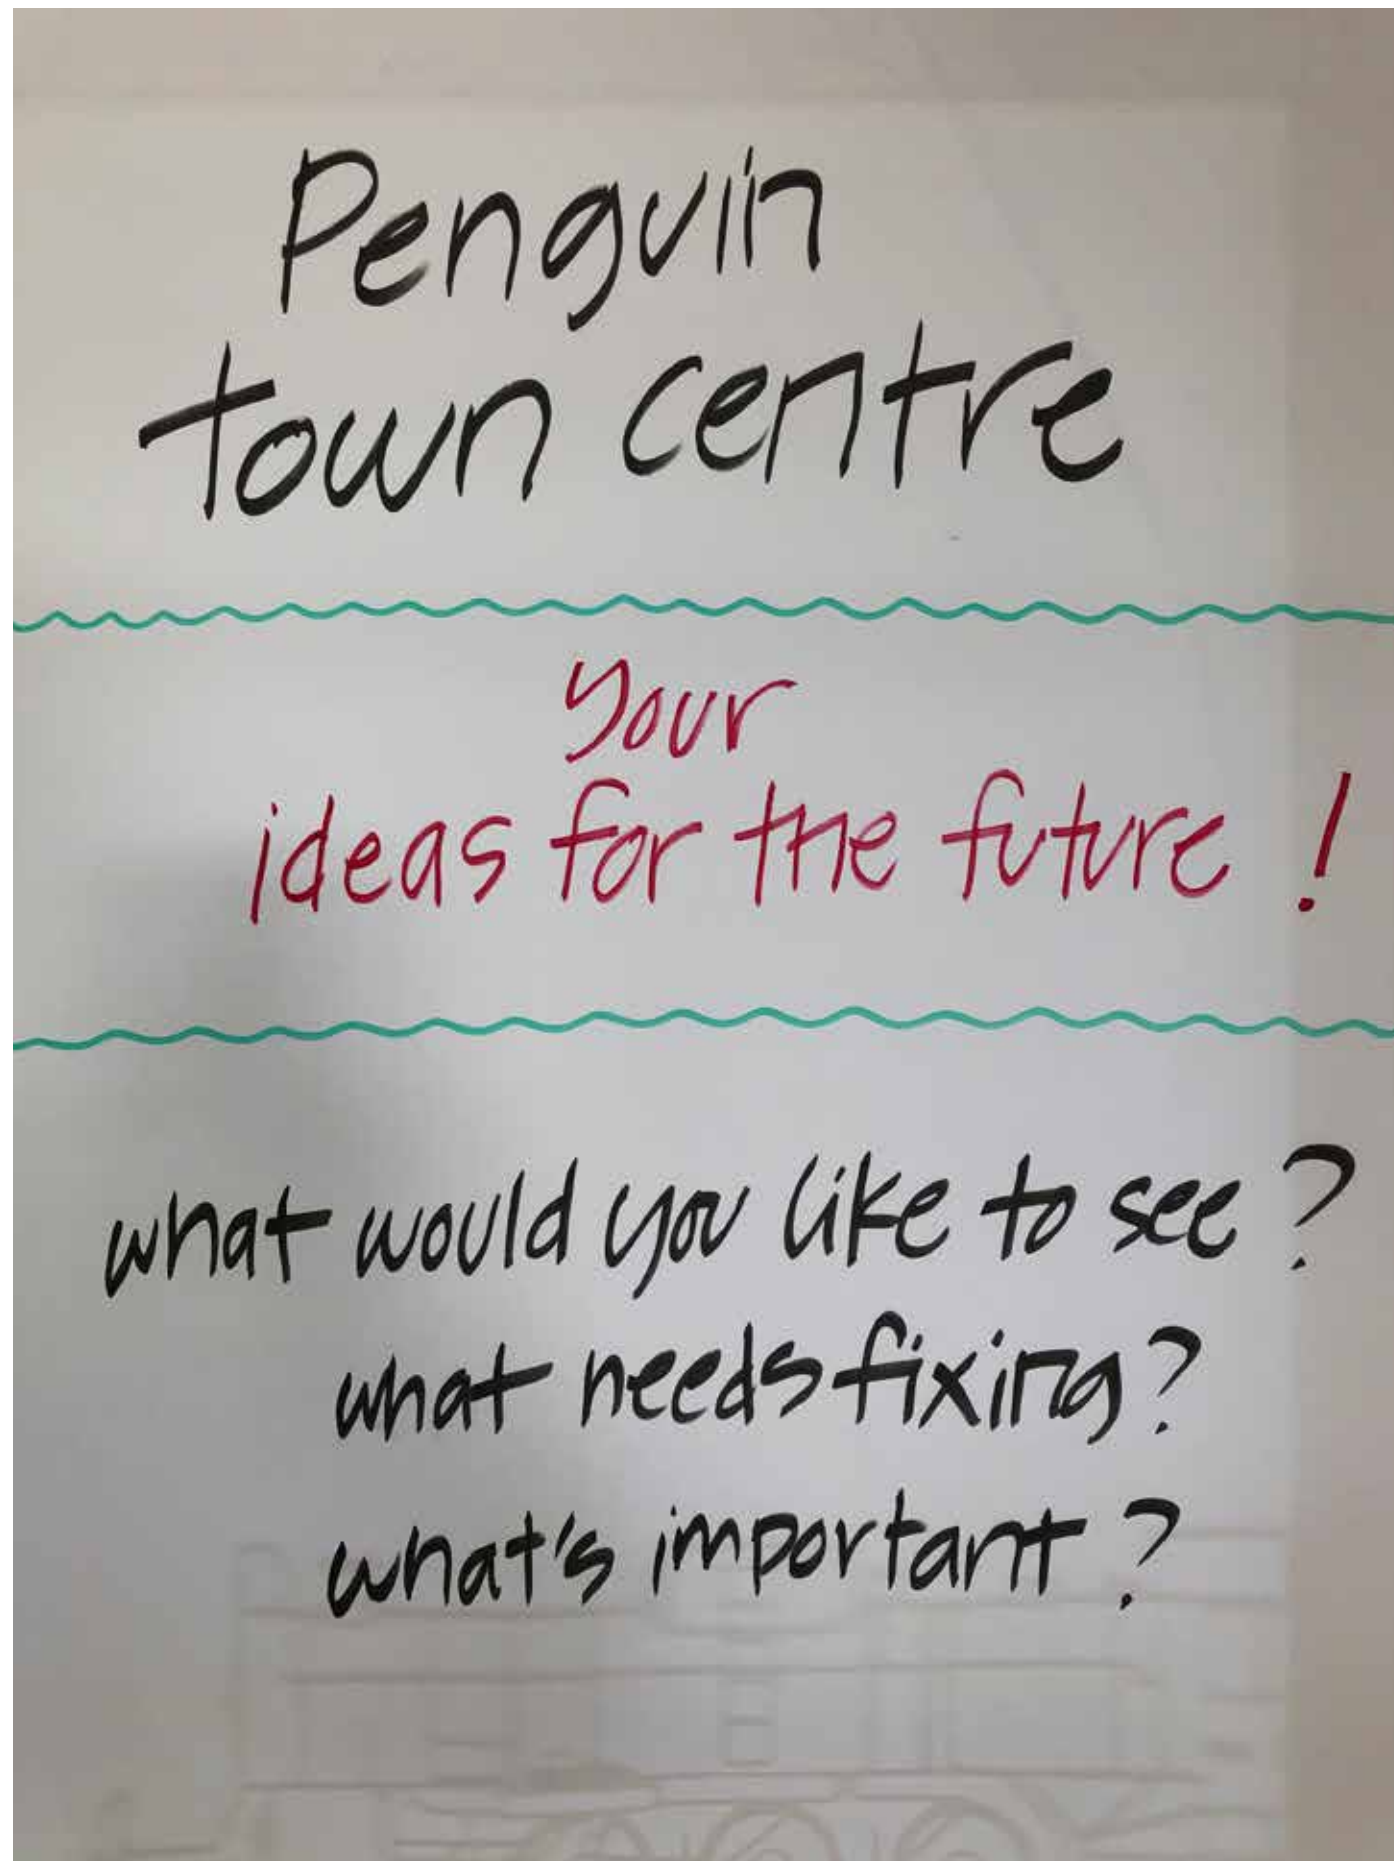 Penguin
town centre
Your
ideas for the future!
what would you like to see?
what needs fixing?
what's important?